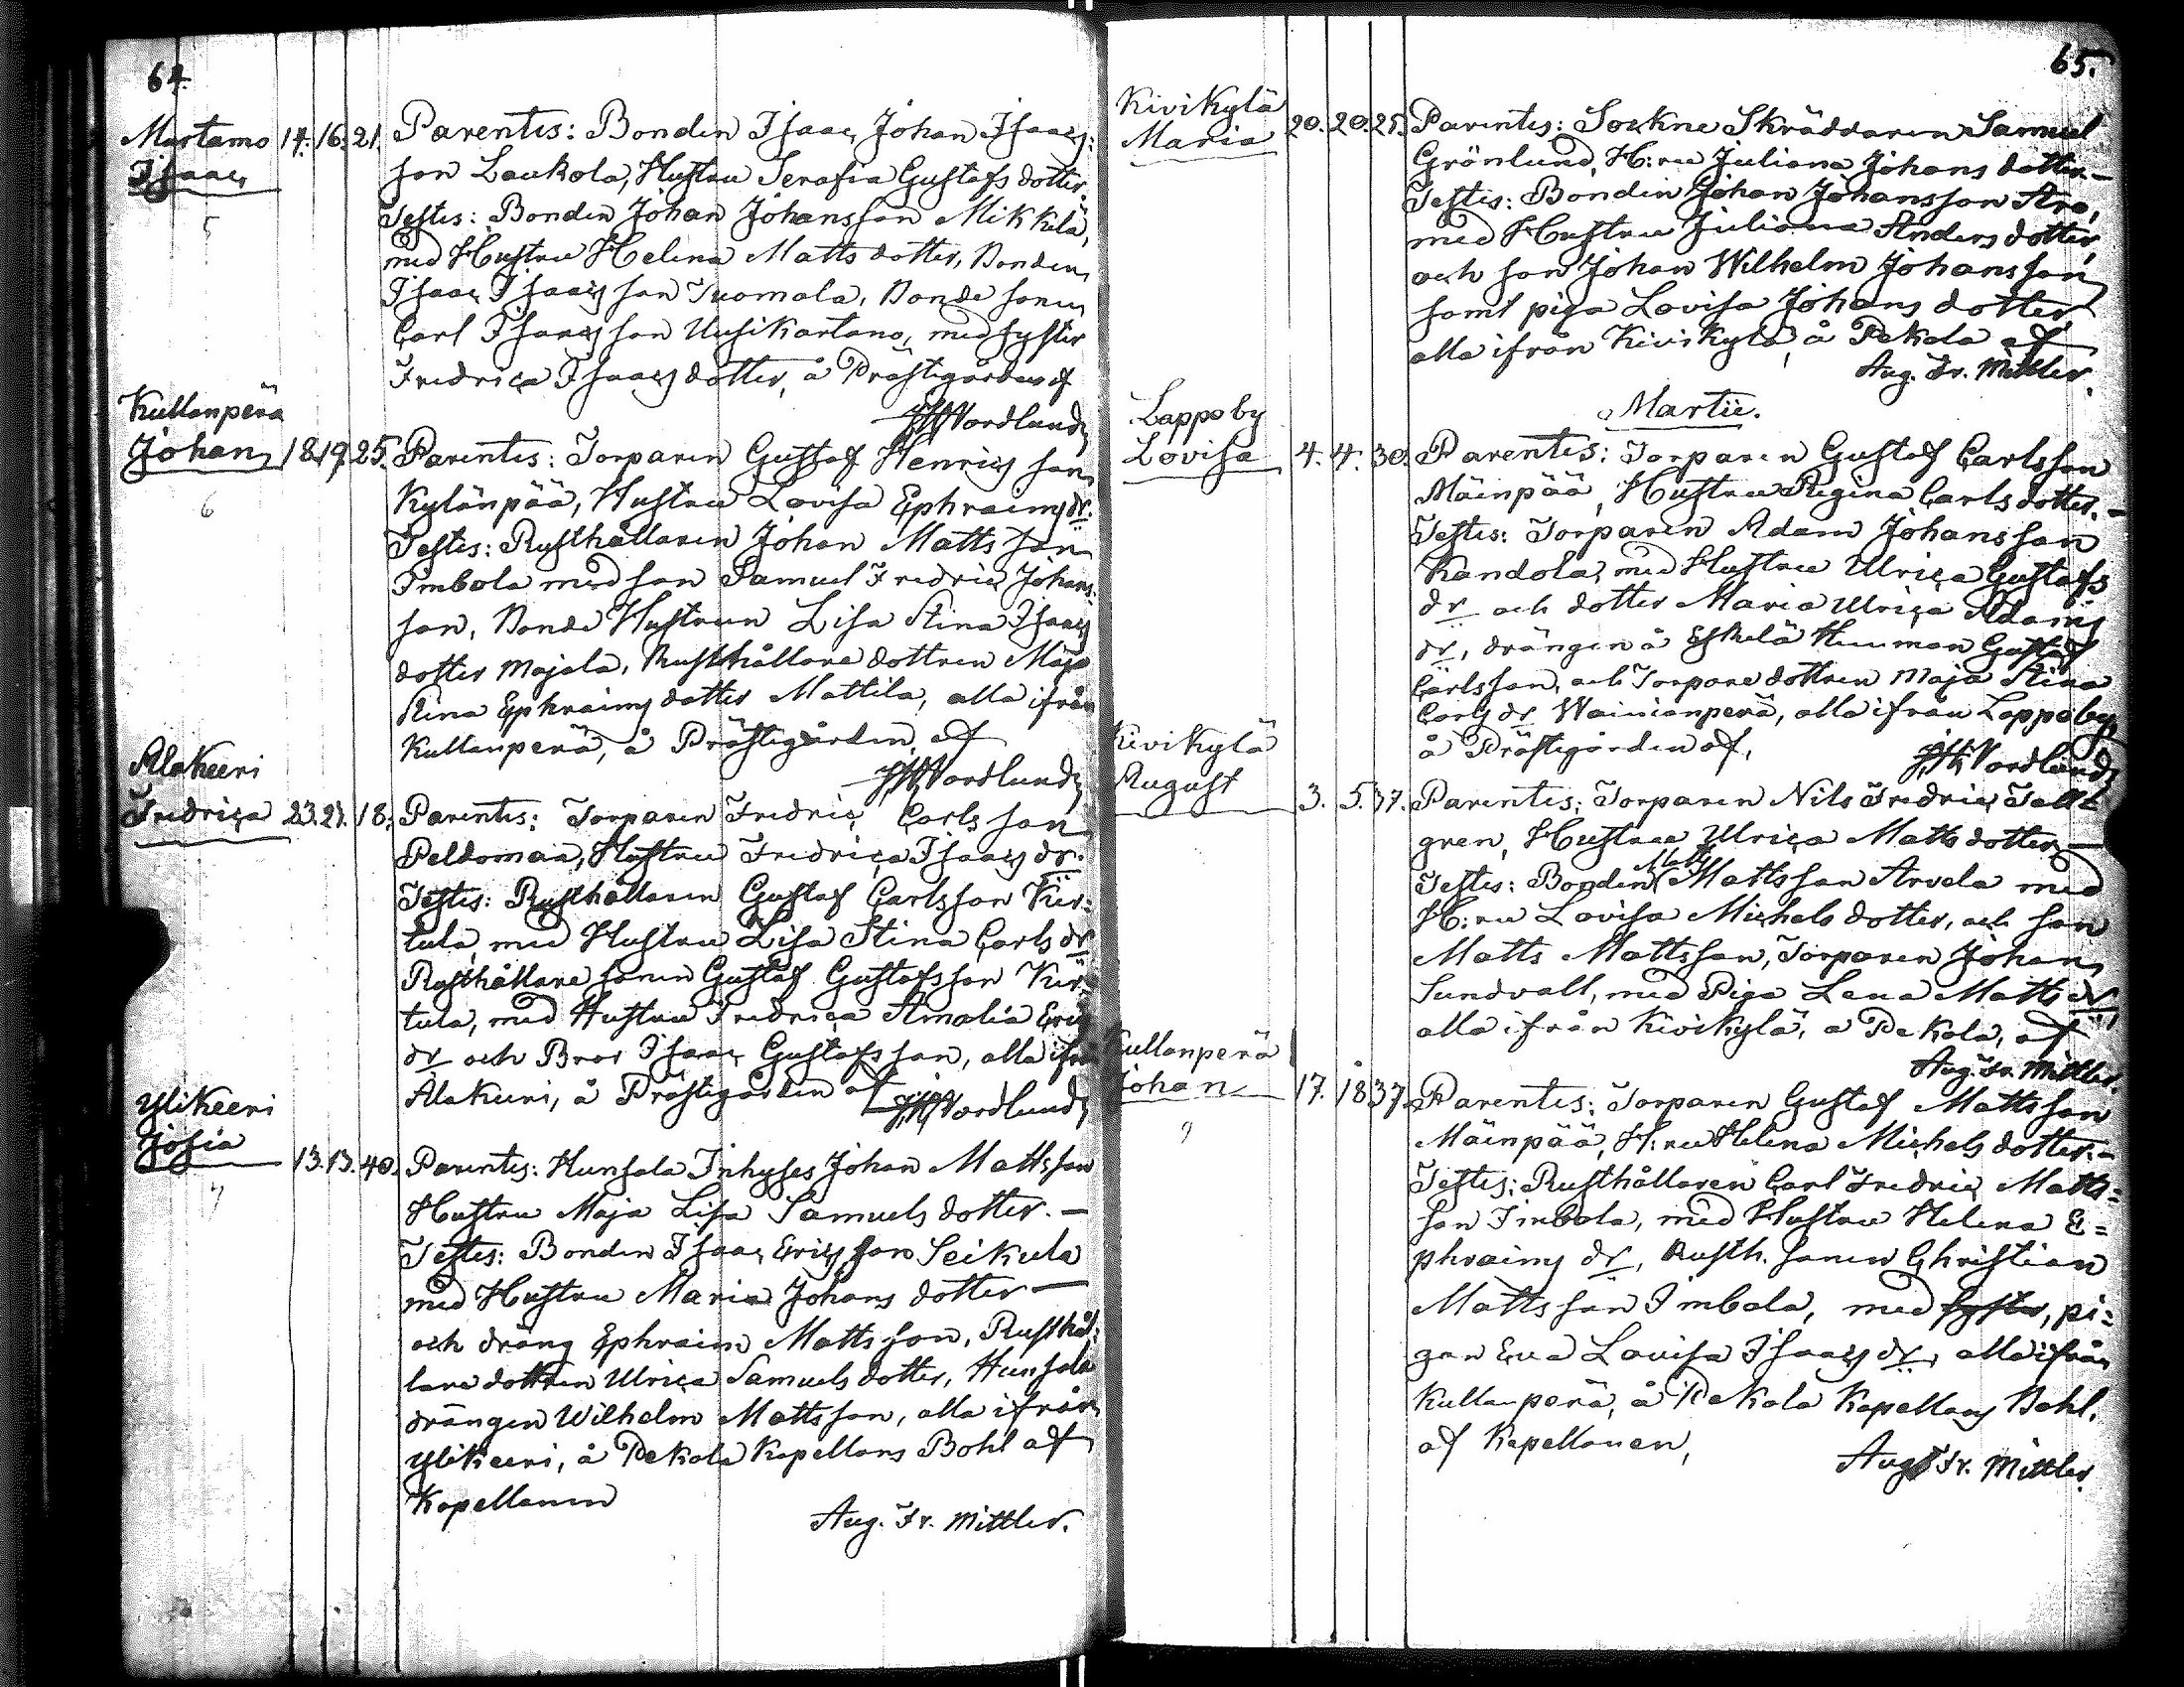 64.
Martamo 14. 16. 21. Parentes: Bonden Isaac Johan Isaacs:
Isaac son Laukola, Hustru Serafia Gustafs dotter.
Testes: Bonden Johan Johansson Mikkila,
5
med Hustru Helena Matts dotter, Bonden
Isaac Isaacs son Tuomola, Bonde sonen
Carl Isaacs son Uusikartano, med syster
Fredrica Isaacs dotter, å Prästegården af
Nordlund
Kullanperä
Johan 18. 19. 25. Parentes: Torparen Gustaf Henrics son
Kylänpää, Hustru Lovisa Ephraims dr.
6
Testes: Rusthållaren Johan Matts son
Imbola med son Samuel Fredric Johans:
son, Bonde Hustrun Lisa Stina Isaacs
dotter Majala, Rusthållare dottren Maja
Stina Ephraims dotter Mattila, alla ifrån
Kullanperä, å Prästegården, af
Nordlund
Alakeeri
Fredrica 23. 23. 18. Parentes: Torparen Fredric Carls son
Peldomaa, Hustru Fredrica Isaacs dr.
Testes: Rusthållaren Gustaf Carlsson Kir:
tula, med Hustru Lisa Stina Carls dr
Rusthållare sonen Gustaf Gustafsson Kir:
tula, med Hustru Fredrica Amalia Erics
dr och Bror Isaac Gustafsson, alla ifrån
Alakeeri, å Prästegården af
Nordlund
Ylikeeri
Josia 13. 13. 40. Parentes: Hunsala Inhyses Johan Mattsson
7
Hustru Maja Lisa Samuels dotter. —
Testes: Bonden Isaac Erics son Seikula
med Hustru Maria Johans dotter —
och dräng Ephraim Matts son, Rusthål:
lare dottren Ulrica Samuels dotter, Hunsala
drängen Wilhelm Mattsson, alla ifrån
Ylikeeri, å Pekola Kapellans Bohl af
Kapellanen
Aug. Fr. Mittler.
65.
Kivikylä
Maria 20. 20. 25. Parentes: Sockne Skräddaren Samuel
Grönlund, H:ru Juliana Johans dotter. —
Testes: Bonden Johan Johansson Aro,
med Hustru Juliana Anders dotter,
och son Johan Wilhelm Johansson
samt piga Lovisa Johans dotter,
alla ifrån Kivikylä, å Pekola af
Aug. Fr. Mittler.
Martii.
Lappo by
Lovisa 4. 4. 30. Parentes: Torparen Gustaf Carlsson
Mäinpää, Hustru Regina Carls dotter. —
Testes: Torparen Adam Johansson
Kandola, med Hustru Ulrica Gustafs
dr och dotter Maria Ulrica Adams
dr, drängen å Eskelä Gustaf
Carlsson, och Torpare dottren Maja Stina
Carls dr Wainianperä, alla ifrån Lappo by,
å Prästegården af,
Nordlund
Kivikylä
August 3. 5. 37. Parentes: Torparen Nils Fredric Tall:
gren, Hustru Ulrica Matts dotter —
Testes: Bonden Matts Mattsson Arvela med
H:ru Lovisa Michels dotter, och son
Matts Mattsson, Torparen Johan
Sundvall, med Piga Lena Matts dr
alla ifrån Kivikylä, å Pekola, af
Aug. Fr. Mittler.
Kullanperä
Johan 17. 18. 37. Parentes: Torparen Gustaf Mattsson
9
Mäinpää, H:ru Helena Michels dotter. —
Testes: Rusthållaren Carl Fredric Matts=
son Imbola, med Hustru Helena E=
phraims dr, Rusth. sonen Christian
Matts son Imbola, med syster, pi=
gan Eva Lovisa Isaacs dr, alla ifrån
Kullanperä, å Pekola Kapellans Bohl,
af Kapellanen,
Aug. Fr. Mittler.